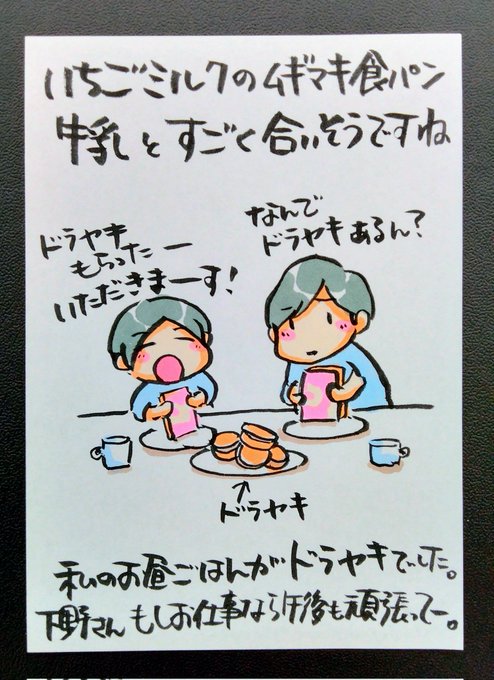 いちごミルクのムギマキ食パン
牛乳とすごく合いそうですね
なんで
ドラヤキあるん?
ドラヤキ
もらったー
いただきまーす!
↑
ドラヤキ
私のお昼ごはんがドラヤキでした。
下野さんもしお仕事なら午後も頑張ってー。